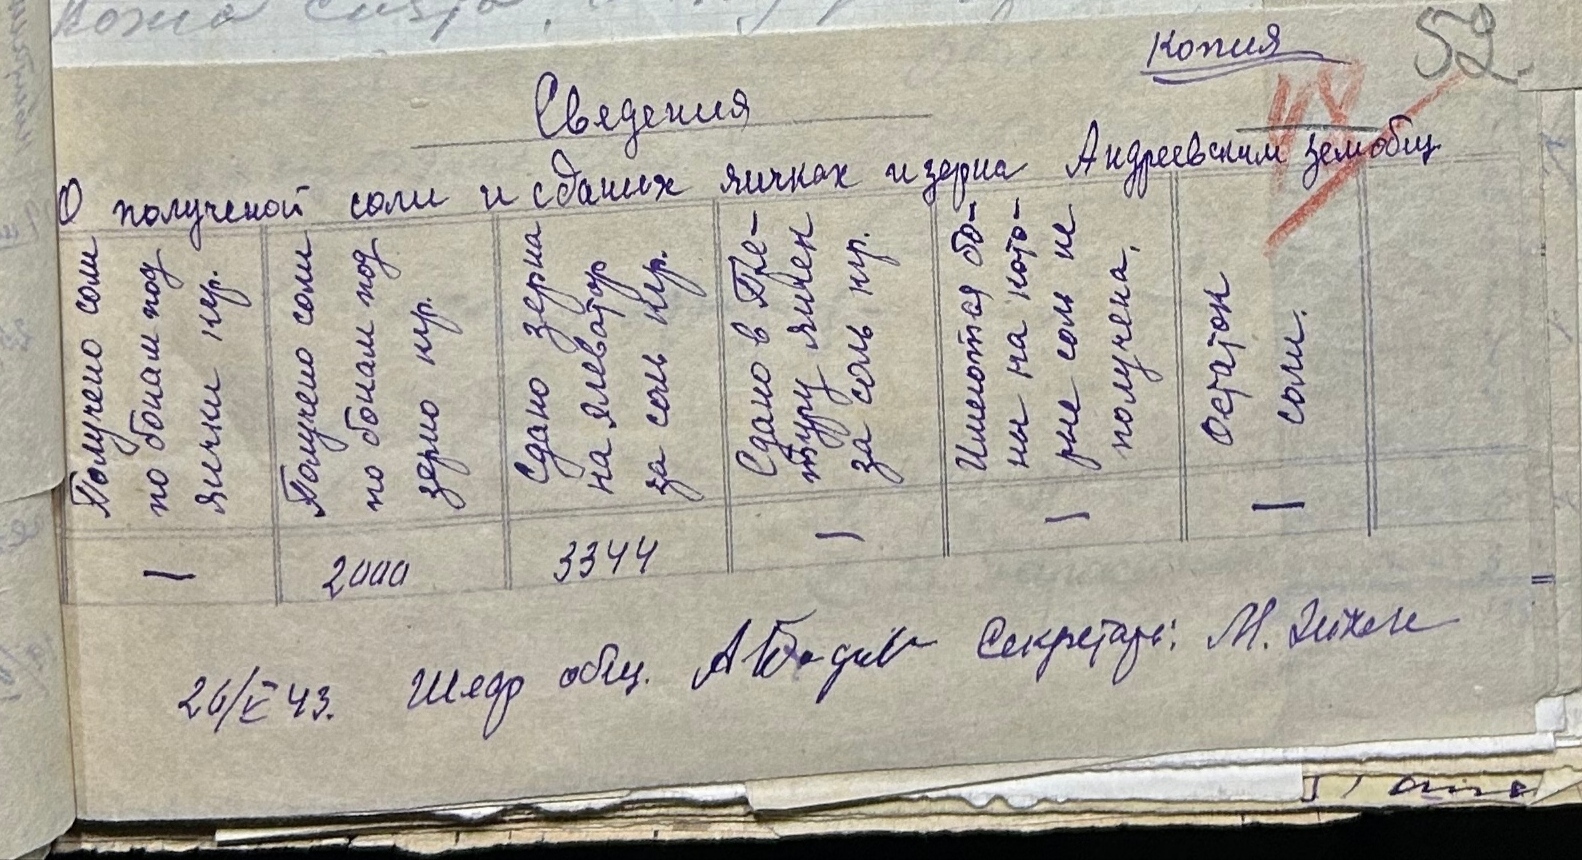 Копия
52
48
Сведения
О полученой соли и сданых яичках и зерна Андреевским земобщ.
Получено соли
по бонам под
яички кгр.
Получено соли
по бонам под
зерно кгр.
Сдано зерна
на Элеватор
за соль кгр.
Сдано в Пре-
туру яичек
за соль кгр.
Имеются бо-
ны на кото-
рые соль не
получена.
Остаток
соли.
—
2000
3344
—
—
—
26/V 43. Шеф общ. Секретарь: М.